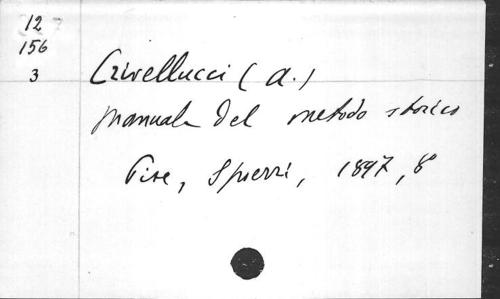 12
156
3
Crivellucci (A.)
Manuale del metodo storico
Pise, Spoerri, 1897, 8°